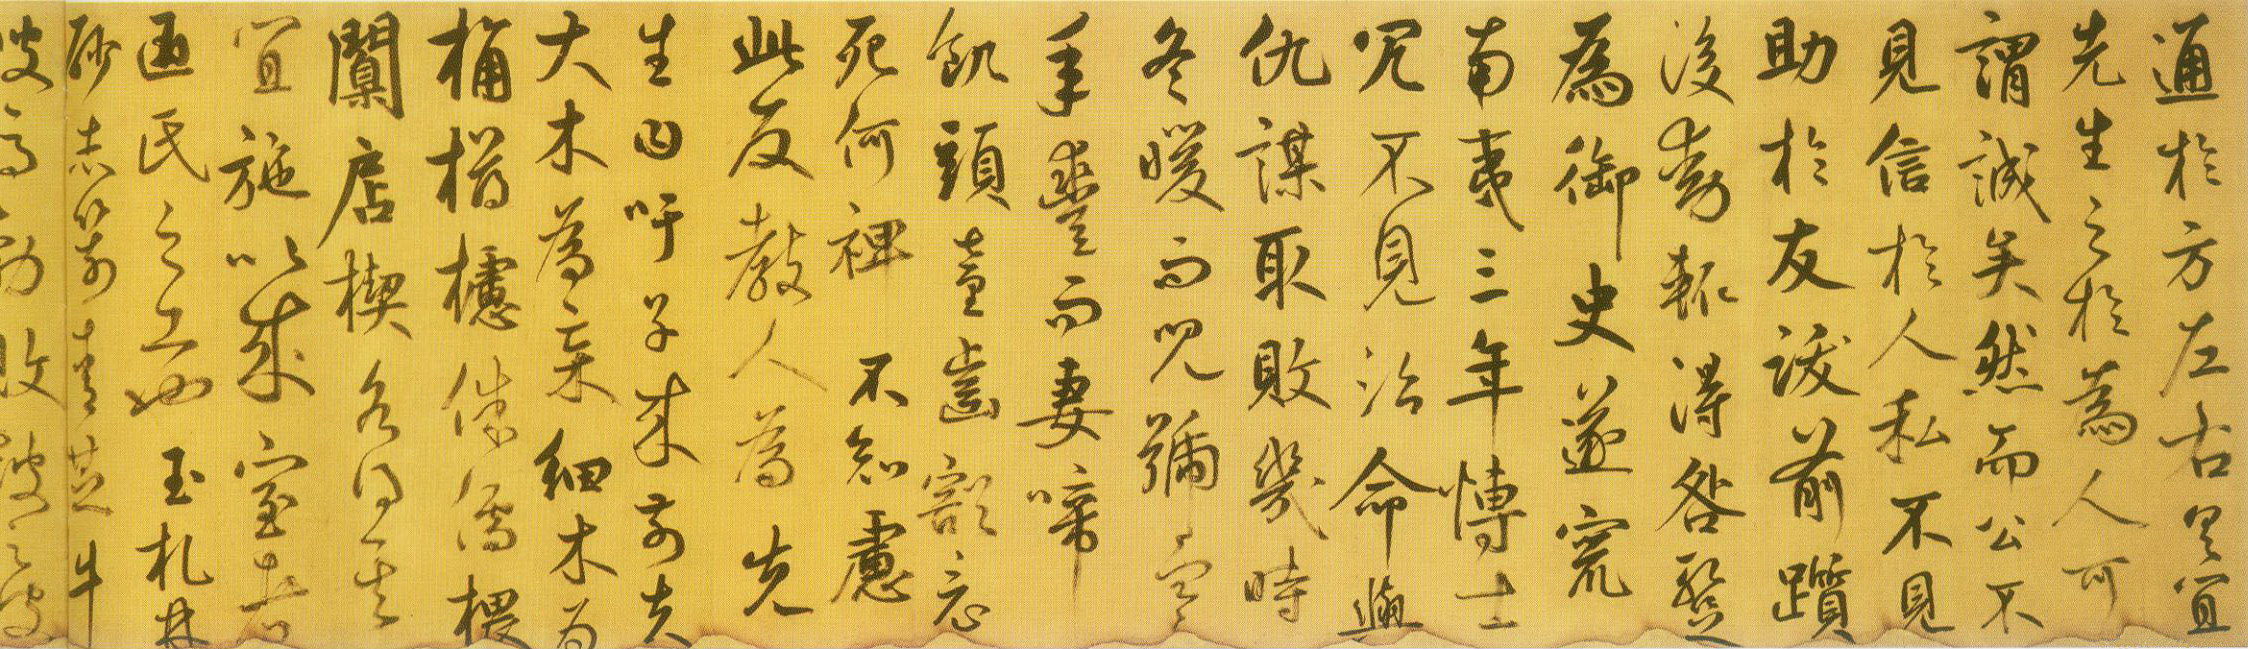 通於方左右具宜
先生之於為人可
謂誠矣然而公不
見信於人私不見
助於友跋前躓
後動輒得咎暫
為御史遂竄
南夷三年博士
冗不見治命與
仇謀取敗幾時
冬暖而兒號寒
年豐而妻啼
飢頭童齒豁竟
死何裨不知慮
此反教人為先
生曰吁子來前夫
大木為杗細木為
桷櫨侏儒椳
闑扂楔各得其
宜施以成室者
匠氏之工也玉札丹
砂赤箭青芝牛
溲馬勃敗鼓之皮